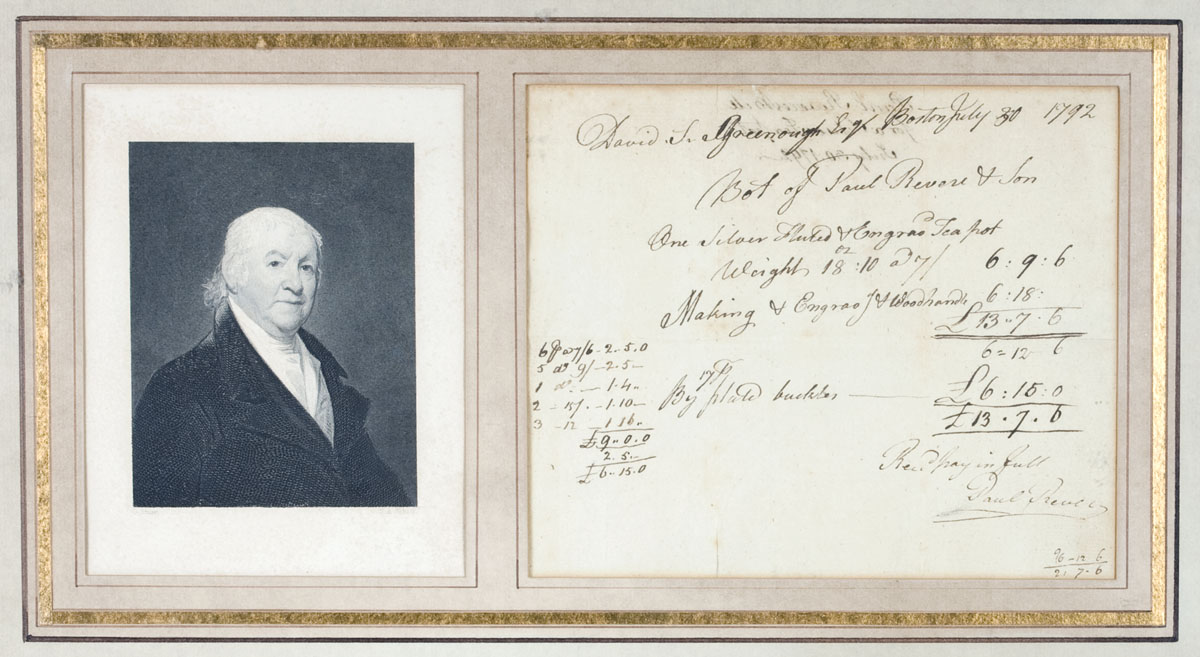 David S. Greenough Esqr Boston July 30 1792
Bot of Paul Revere & Son
One Silver Fluted & Engravd Tea pot
Weight 18oz : 10 a 7/ 6 : 9 : 6
Making & Engravg & Woodhandle 6 : 18 :
£13 - 7 . 6
6 = 12 6
By 17 pr plated buckles £6 : 15 : 0
£13 . 7 . 6
6 pr a 7/6 - 2 . 5 . 0
5 do 9/ - 2 . 5 -
1 do - 1 . 4 -
2 - 15/ - 1 . 10 -
3 - 12 - 1 16 -
£9 . 0 . 0
2 . 5 -
£6 - 15 . 0
Recd pay in full
Paul Revere
6 - 12 6
7 - 6